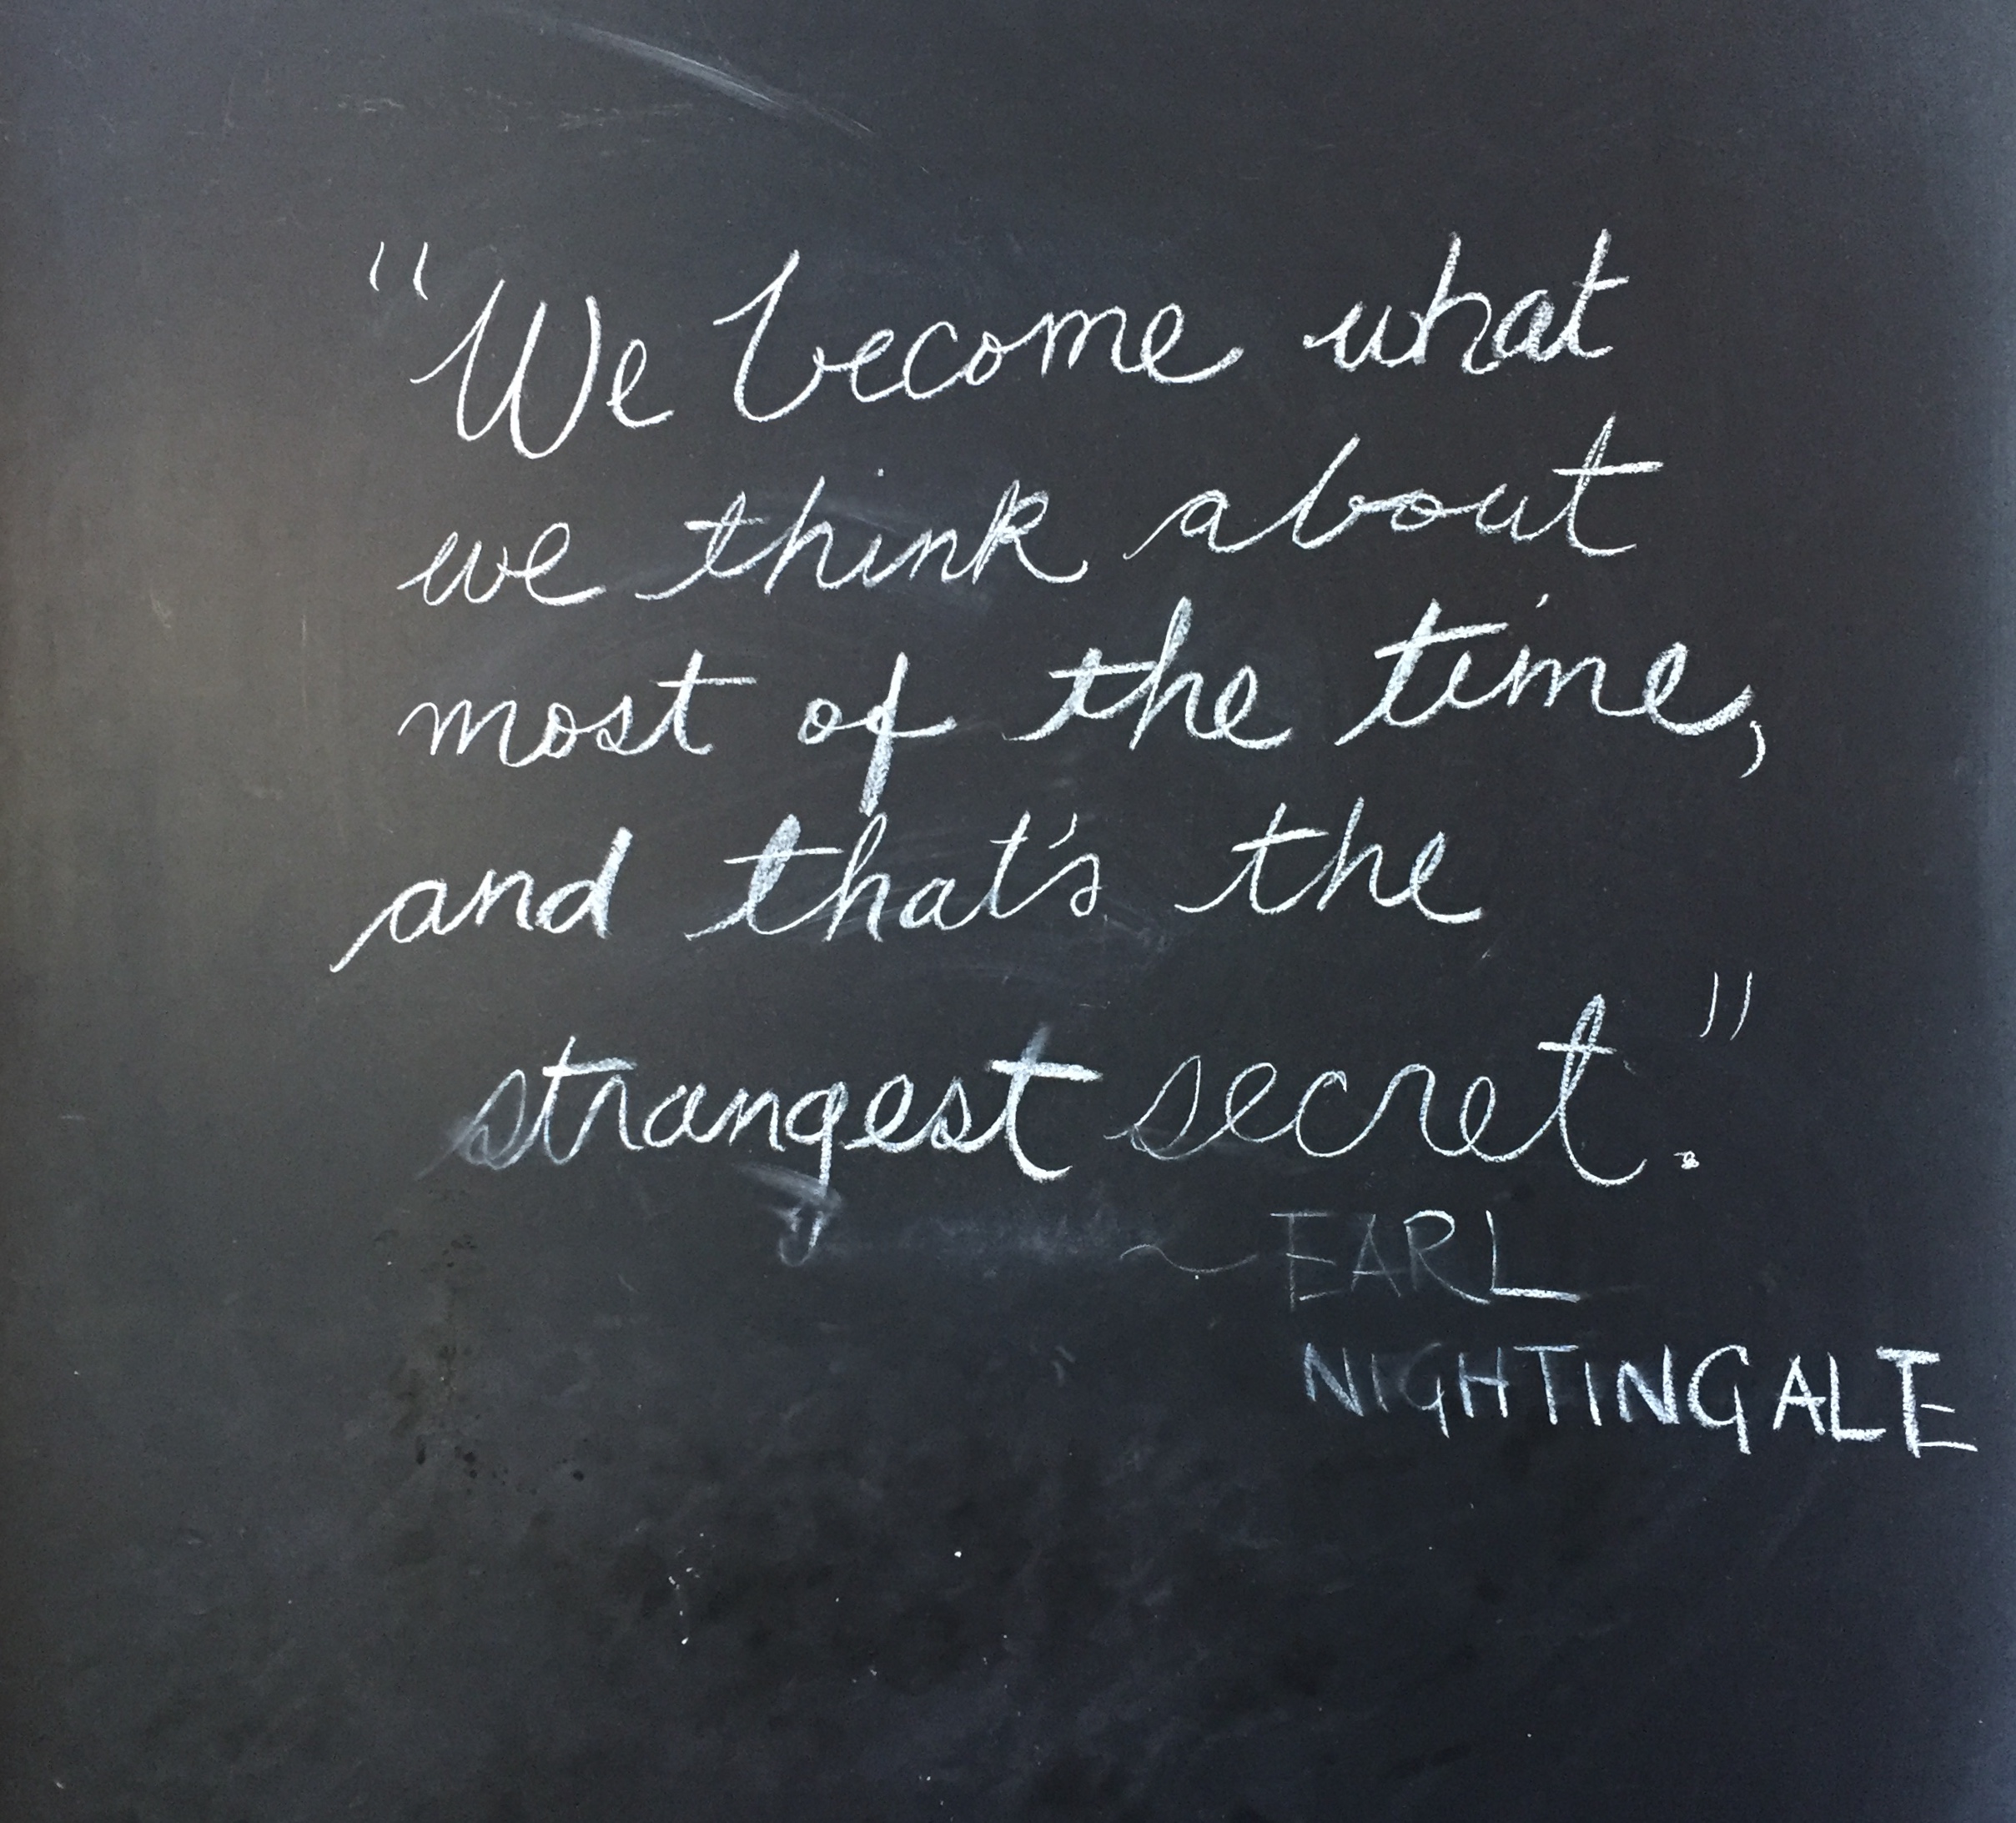 "We become what
we think about
most of the time,
and that's the
strangest secret."
~ EARL
NIGHTINGALE